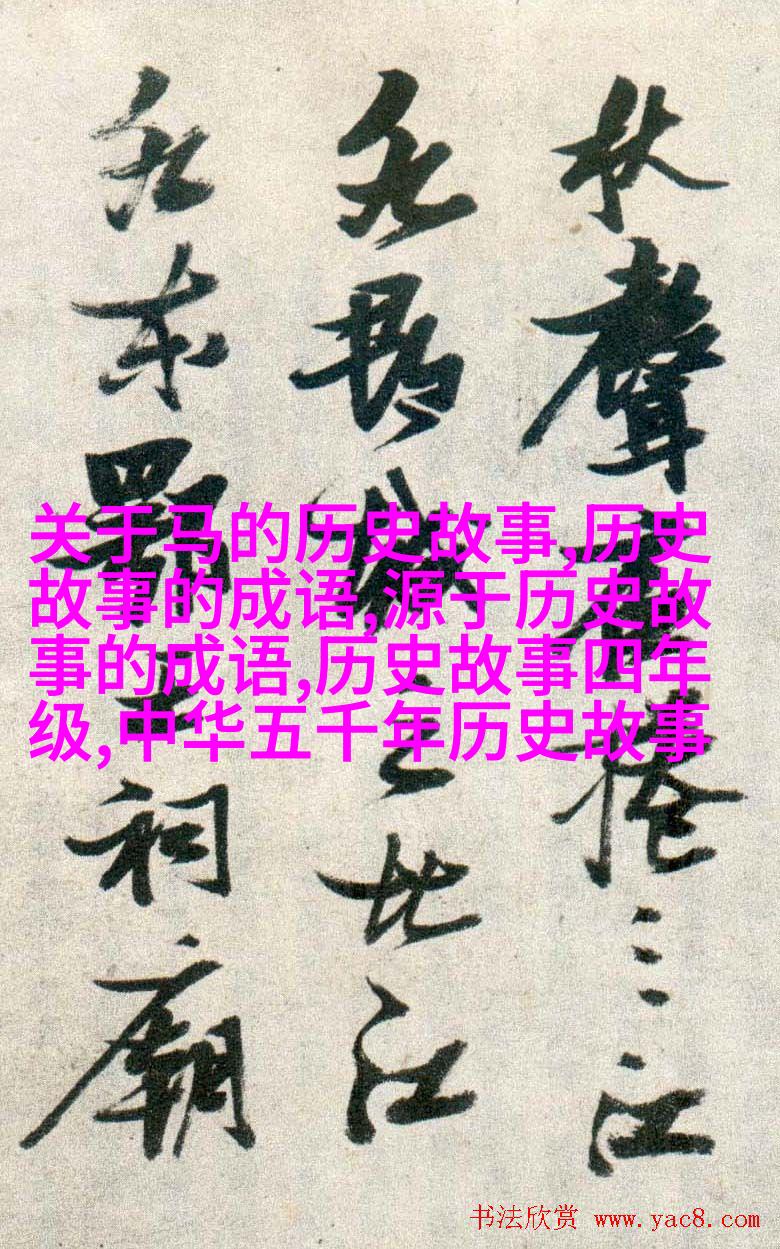 秋聲捲三江
北江
東鄂王祠廟
关于马的历史故事,历史
故事的成语,源于历史故
事的成语,历史故事四年
级,中华五千年历史故事
书法欣赏 www.yac8.com